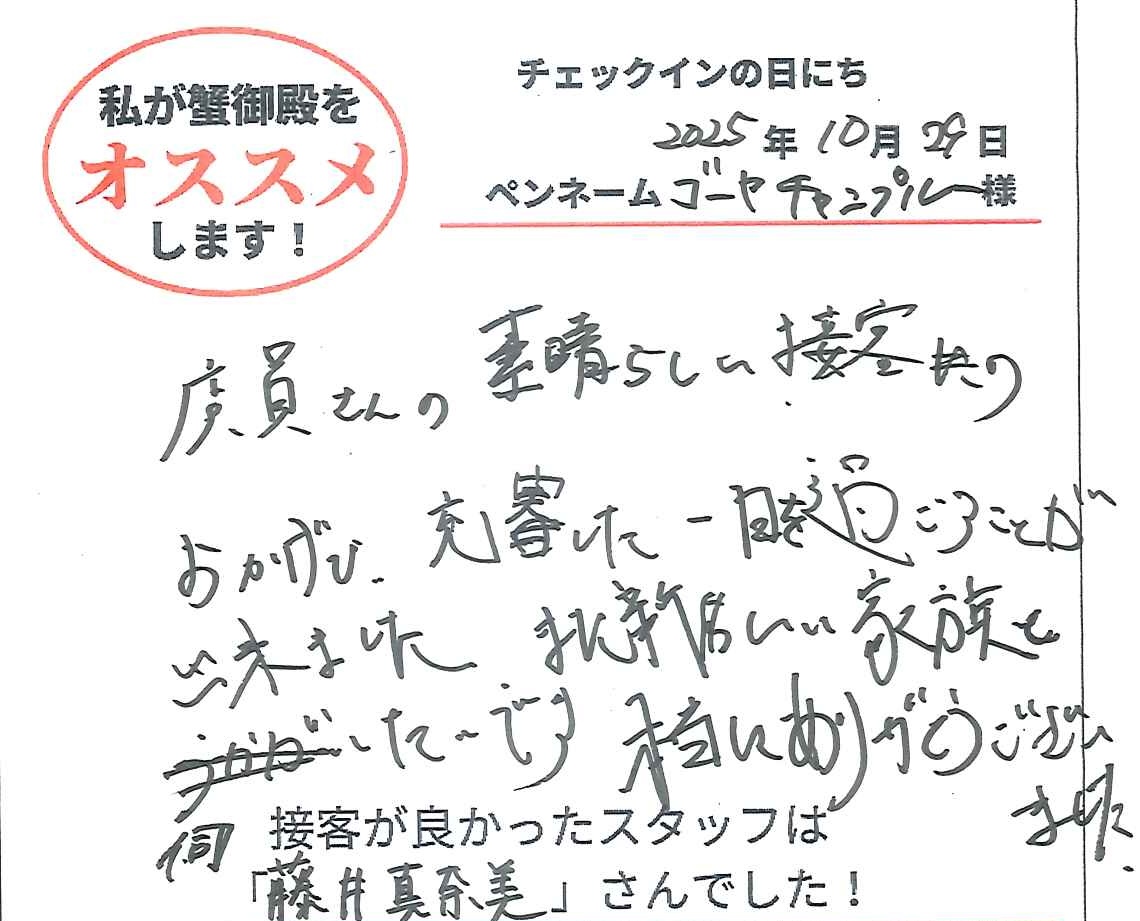 私が蟹御殿を
オススメ
します！
チェックインの日にち
2025年10月29日
ペンネーム ゴーヤチャンプルー様
店員さんの素晴らしい接客の
おかげで充実した一日を過ごすことが
出来ました また新しい家族と
したいです 本当にありがとうござい
ました
伺
接客が良かったスタッフは
「藤井真奈美」さんでした！